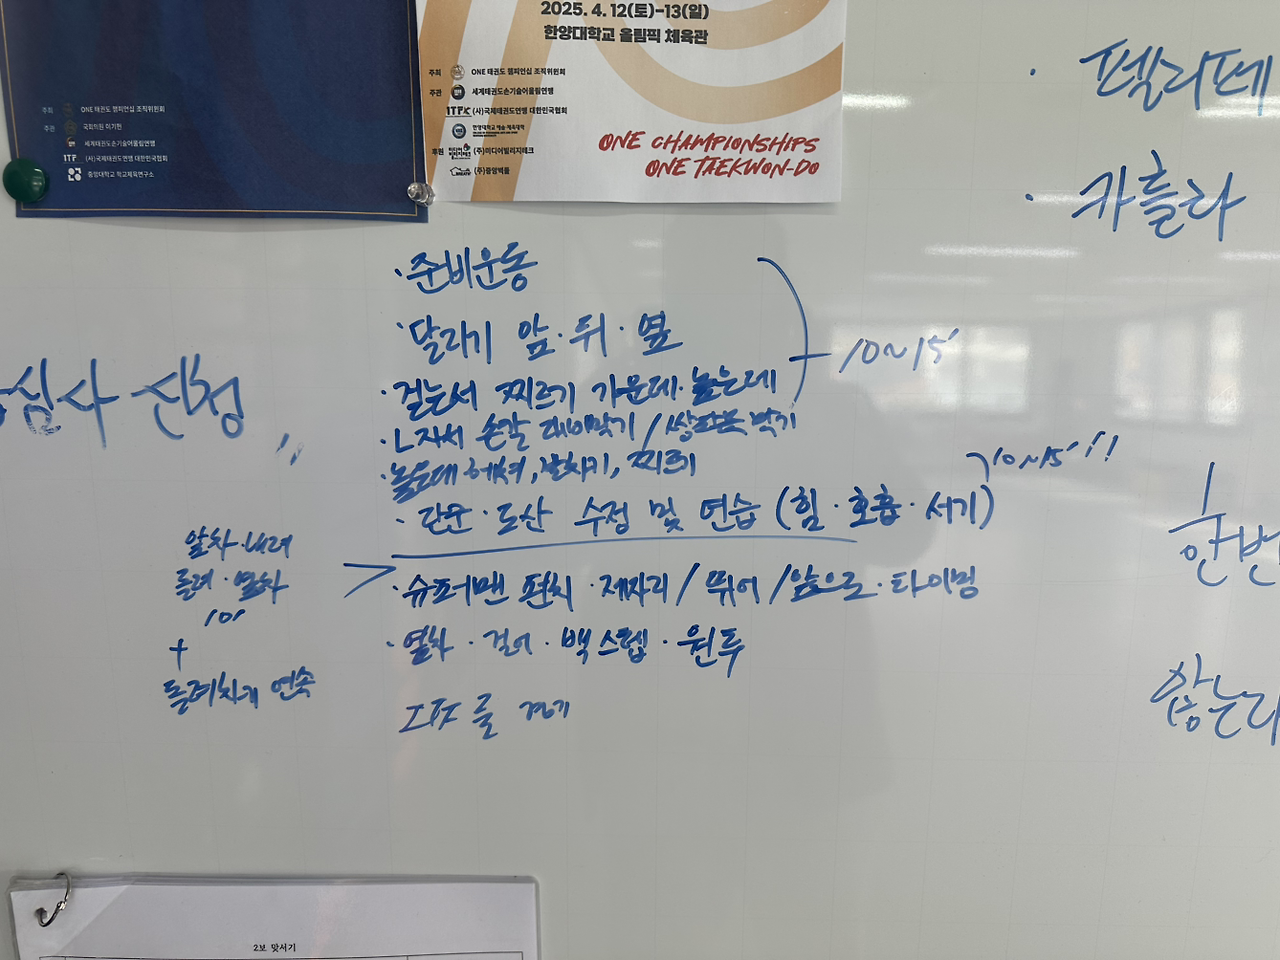 주최 ONE 태권도 챔피언십 조직위원회
주관 국회의원 이기헌
세계태권도손기술어울림연맹
ITF (사)국제태권도연맹 대한민국협회
중앙대학교 학교체육연구소
2025. 4. 12(토)-13(일)
한양대학교 올림픽 체육관
주최 ONE 태권도 챔피언십 조직위원회
주관 세계태권도손기술어울림연맹
ITFK (사)국제태권도연맹 대한민국협회
한양대학교 예술·체육대학
후원 (주)미디어빌리지테크
(주)중앙벽돌
ONE CHAMPIONSHIPS
ONE TAEKWON-DO
· 펠리페
· 카를라
심사 신청
· 준비운동
· 달리기 앞·뒤·옆
10~15'
· 걷는서 찌르기 가운데·높은데
· L자서 손칼 대비막기 / 쌍팔목 막기
· 높은데 헤쳐, 앞차기, 찌르기
· 단군·도산 수정 및 연습 (힘·호흡·서기)
10~15' !!
앞차·내려
돌려·옆차
10'
+
돌려차기 연속
· 슈퍼맨 펀치·제자리 / 뛰어 / 앞으로·타이밍
· 옆차·걸어·백스텝·원투
ITF 룰 겨루기
한번
않는다
2보 맞서기